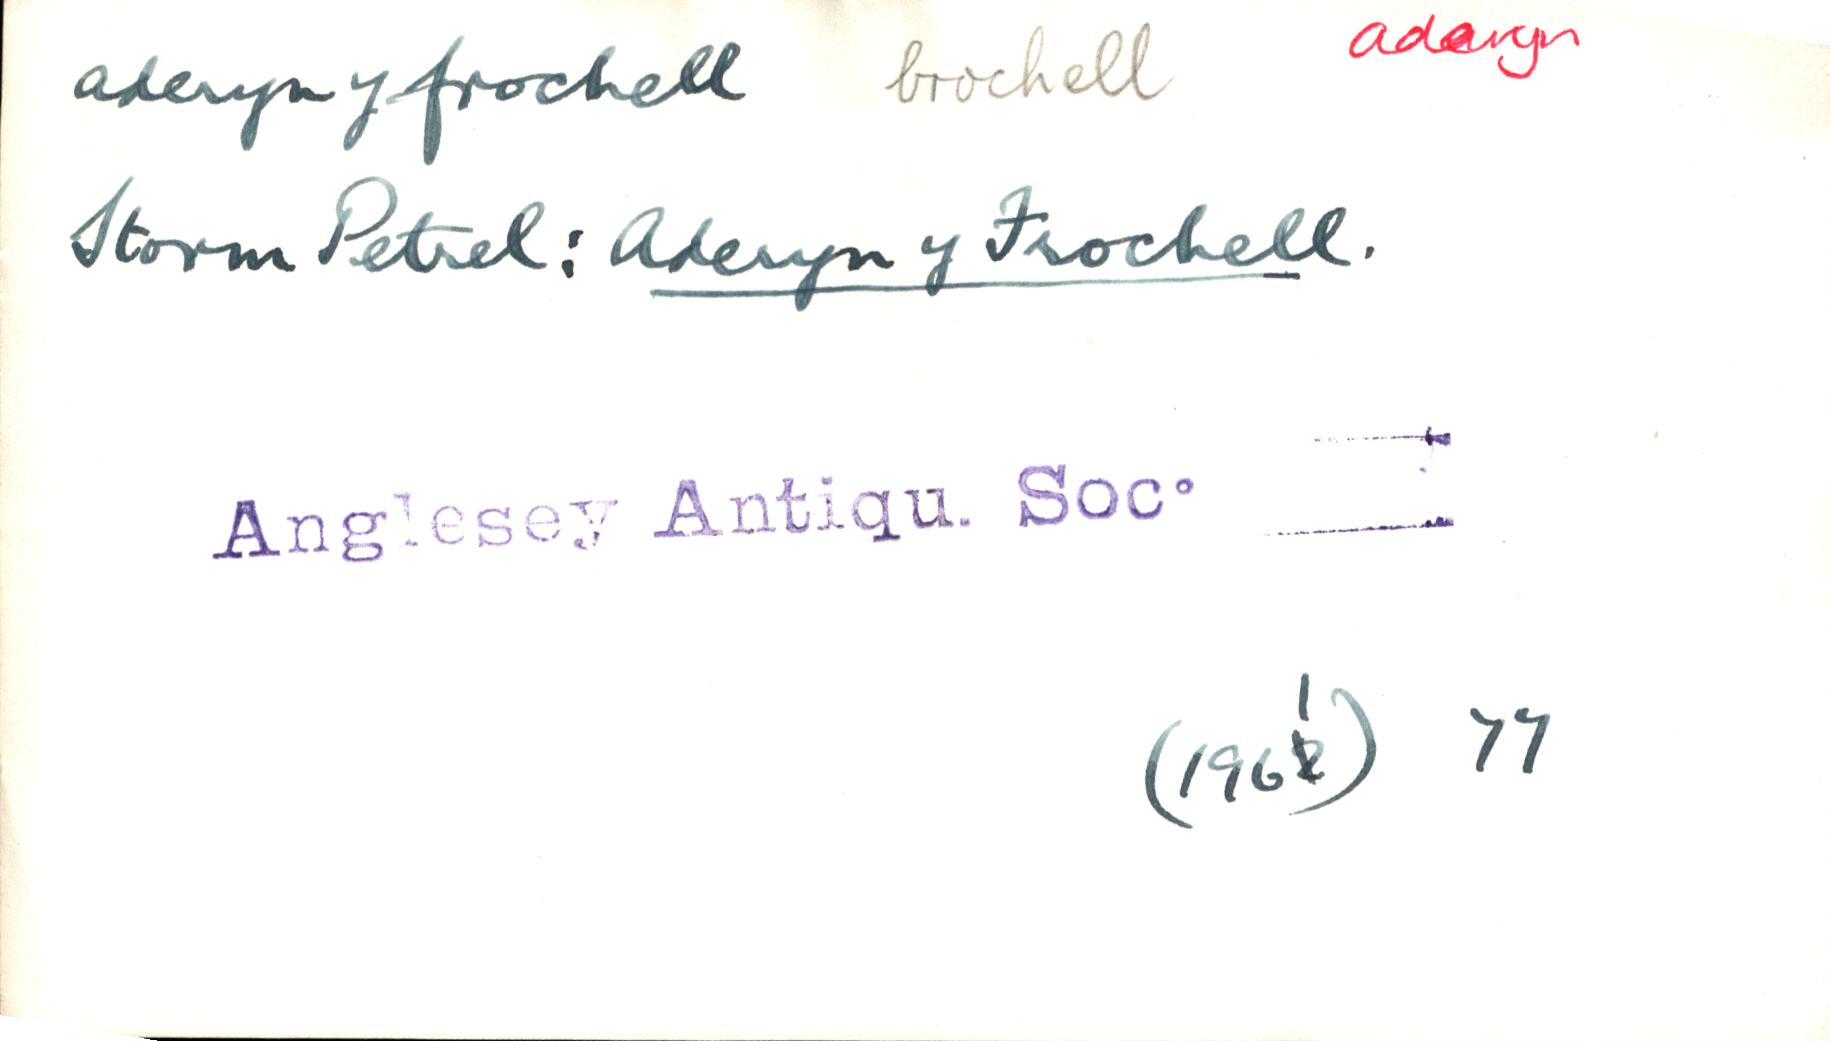 aderyn y frochell brochell aderyn
Storm Petrel: Aderyn y Frochell.
Anglesey Antiqu. Soc.
(1961) 77